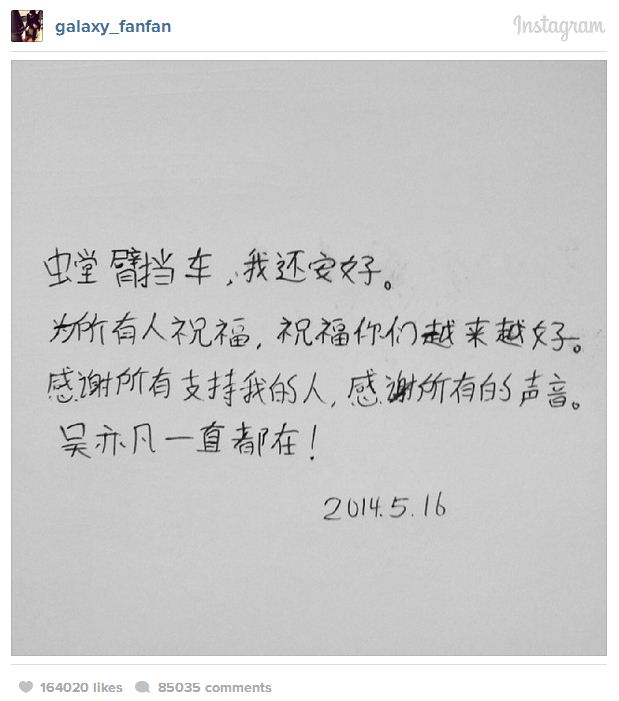 galaxy_fanfan
Instagram
螳臂挡车，我还安好。
为所有人祝福，祝福你们越来越好。
感谢所有支持我的人，感谢所有的声音。
吴亦凡一直都在！
2014.5.16
164020 likes 85035 comments